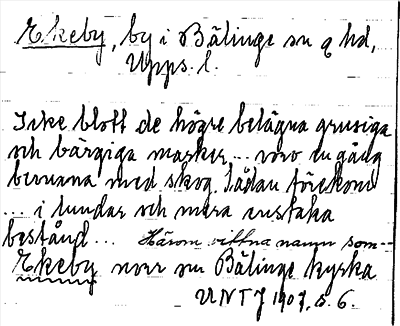 Ekeby, by i Bälinge sn o hd,
Upps. l.
Icke blott de högre belägna grusiga
och bärgiga marker ... voro en gång
bevuxna med skog. Sådan förekom
... i lundar och mera enstaka
bestånd ... Härom vittna namn som --
Ekeby norr om Bälinge kyrka.
UNT J 1907, 5. 6.